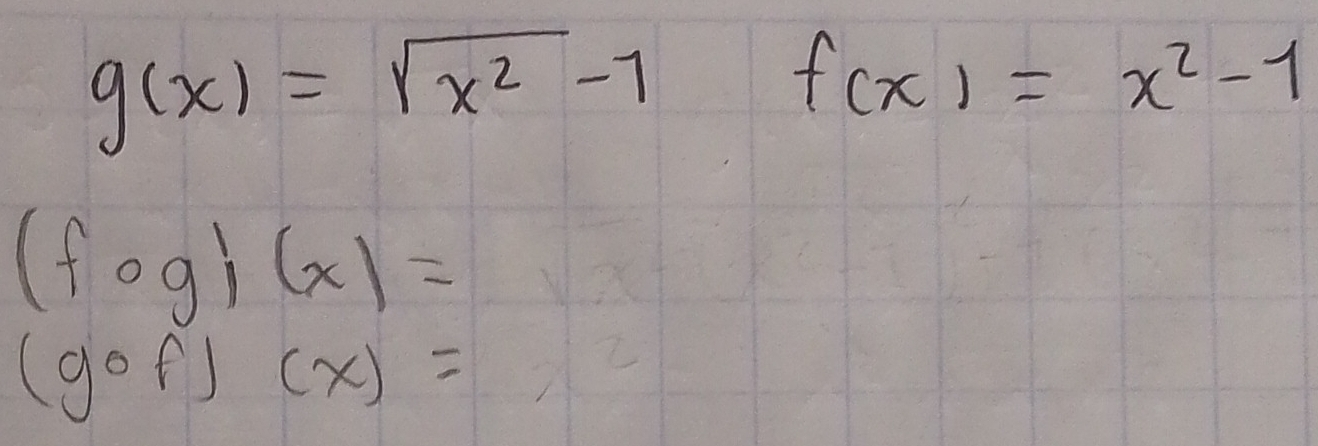 g(x) = √x² -1 f(x) = x² -1
(fog) (x) =
(gof) (x) =